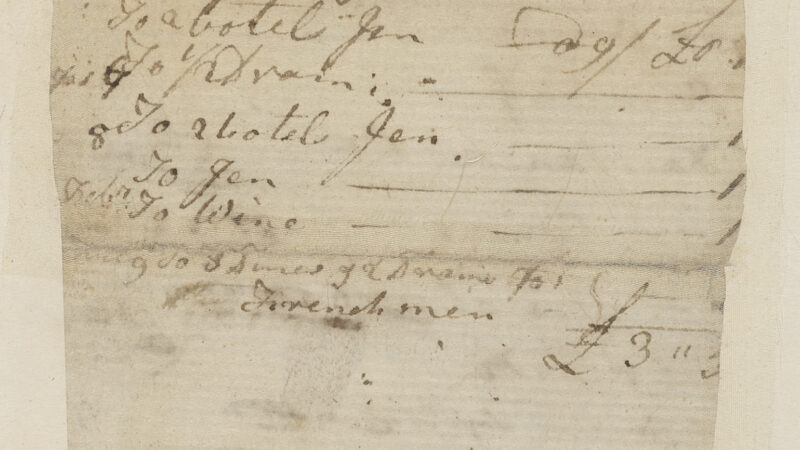 To 2 botel Jen @ 9/ £0
To 1/2 Dram
8 To 2 botel Jen
To Jen
To Wine
9 To 8 Dines & 2 Drams for
Frenchmen
£ 3 "